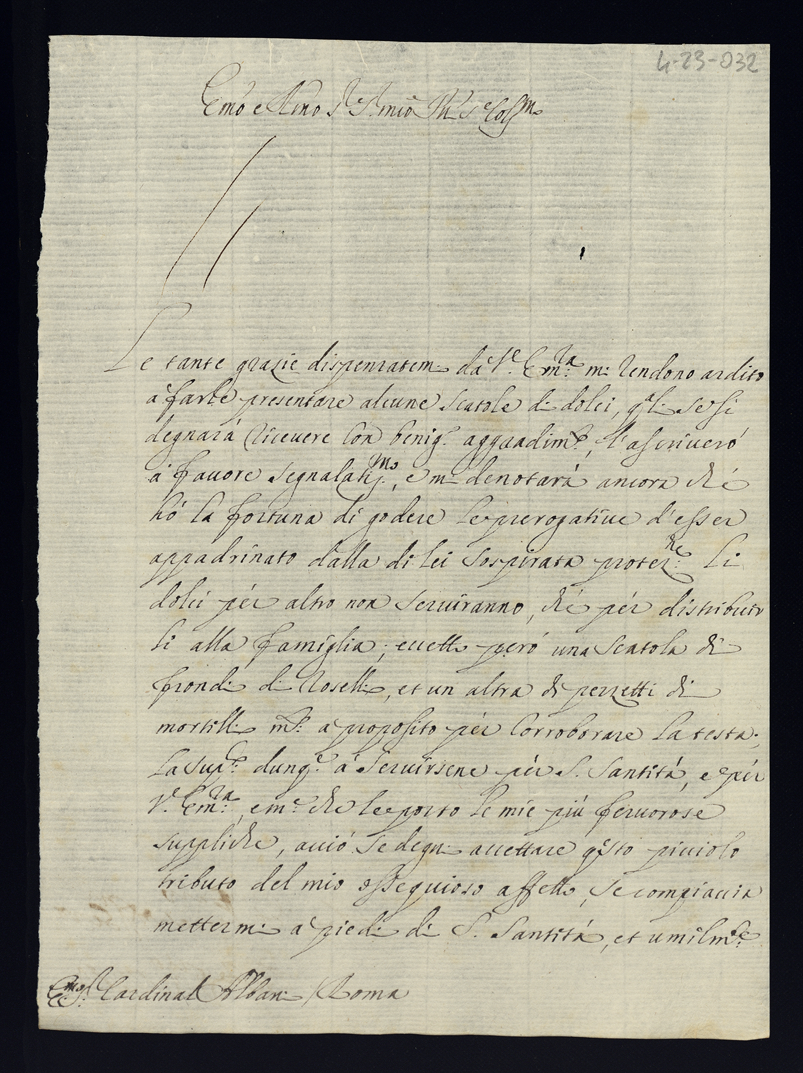 4-23-032
Emo e Rmo Sr. Sr. mio Pn. Se. Colmo
Le tante grazie dispensatemi da Ve. Emza. mi rendono ardito
à farle presentare alcune scatole di dolci, qli. se si
degnarà ricevere con benig. aggradimto, l'ascriverò
à favore segnalatissmo, e mi denotarà ancora che
hò la fortuna di godere le prerogative d'esser
appadrinato dalla di lei sospirata protezne. Li
dolci pér altro non serviranno, che pér distribuir
li alla famiglia, eccetto però una scatola di
frondi di Roselli, et un altra di pezzetti di
mortilli mto. a proposito pér corroborare la testa;
La supco. dunqe. à servirsene pér S. Santità, e pér
Ve. Emza, e mre. che le porto le mie più fervorose
suppliche, acciò se degni accettare qsto picciolo
tributo del mio ossequioso affetto, se compiaccia
mettermi a piedi di S. Santità, et umilmte
Emo Sr. Cardinal Albani / Roma